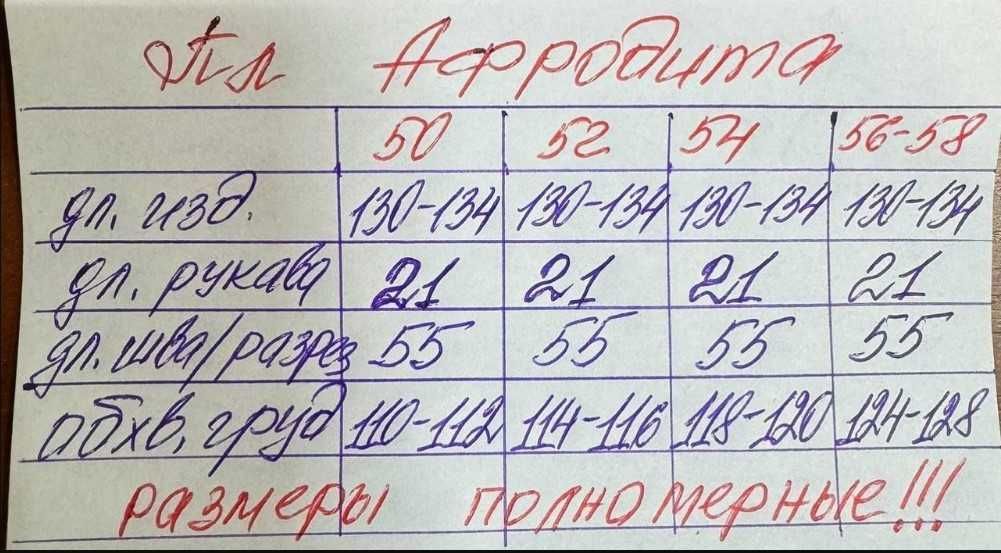 Пл Афродита
50 52 54 56-58
дл. изд. 130-134 130-134 130-134 130-134
дл. рукава 21 21 21 21
дл. шва/разрез 55 55 55 55
обхв. груд 110-112 114-116 118-120 124-128
размеры полномерные!!!